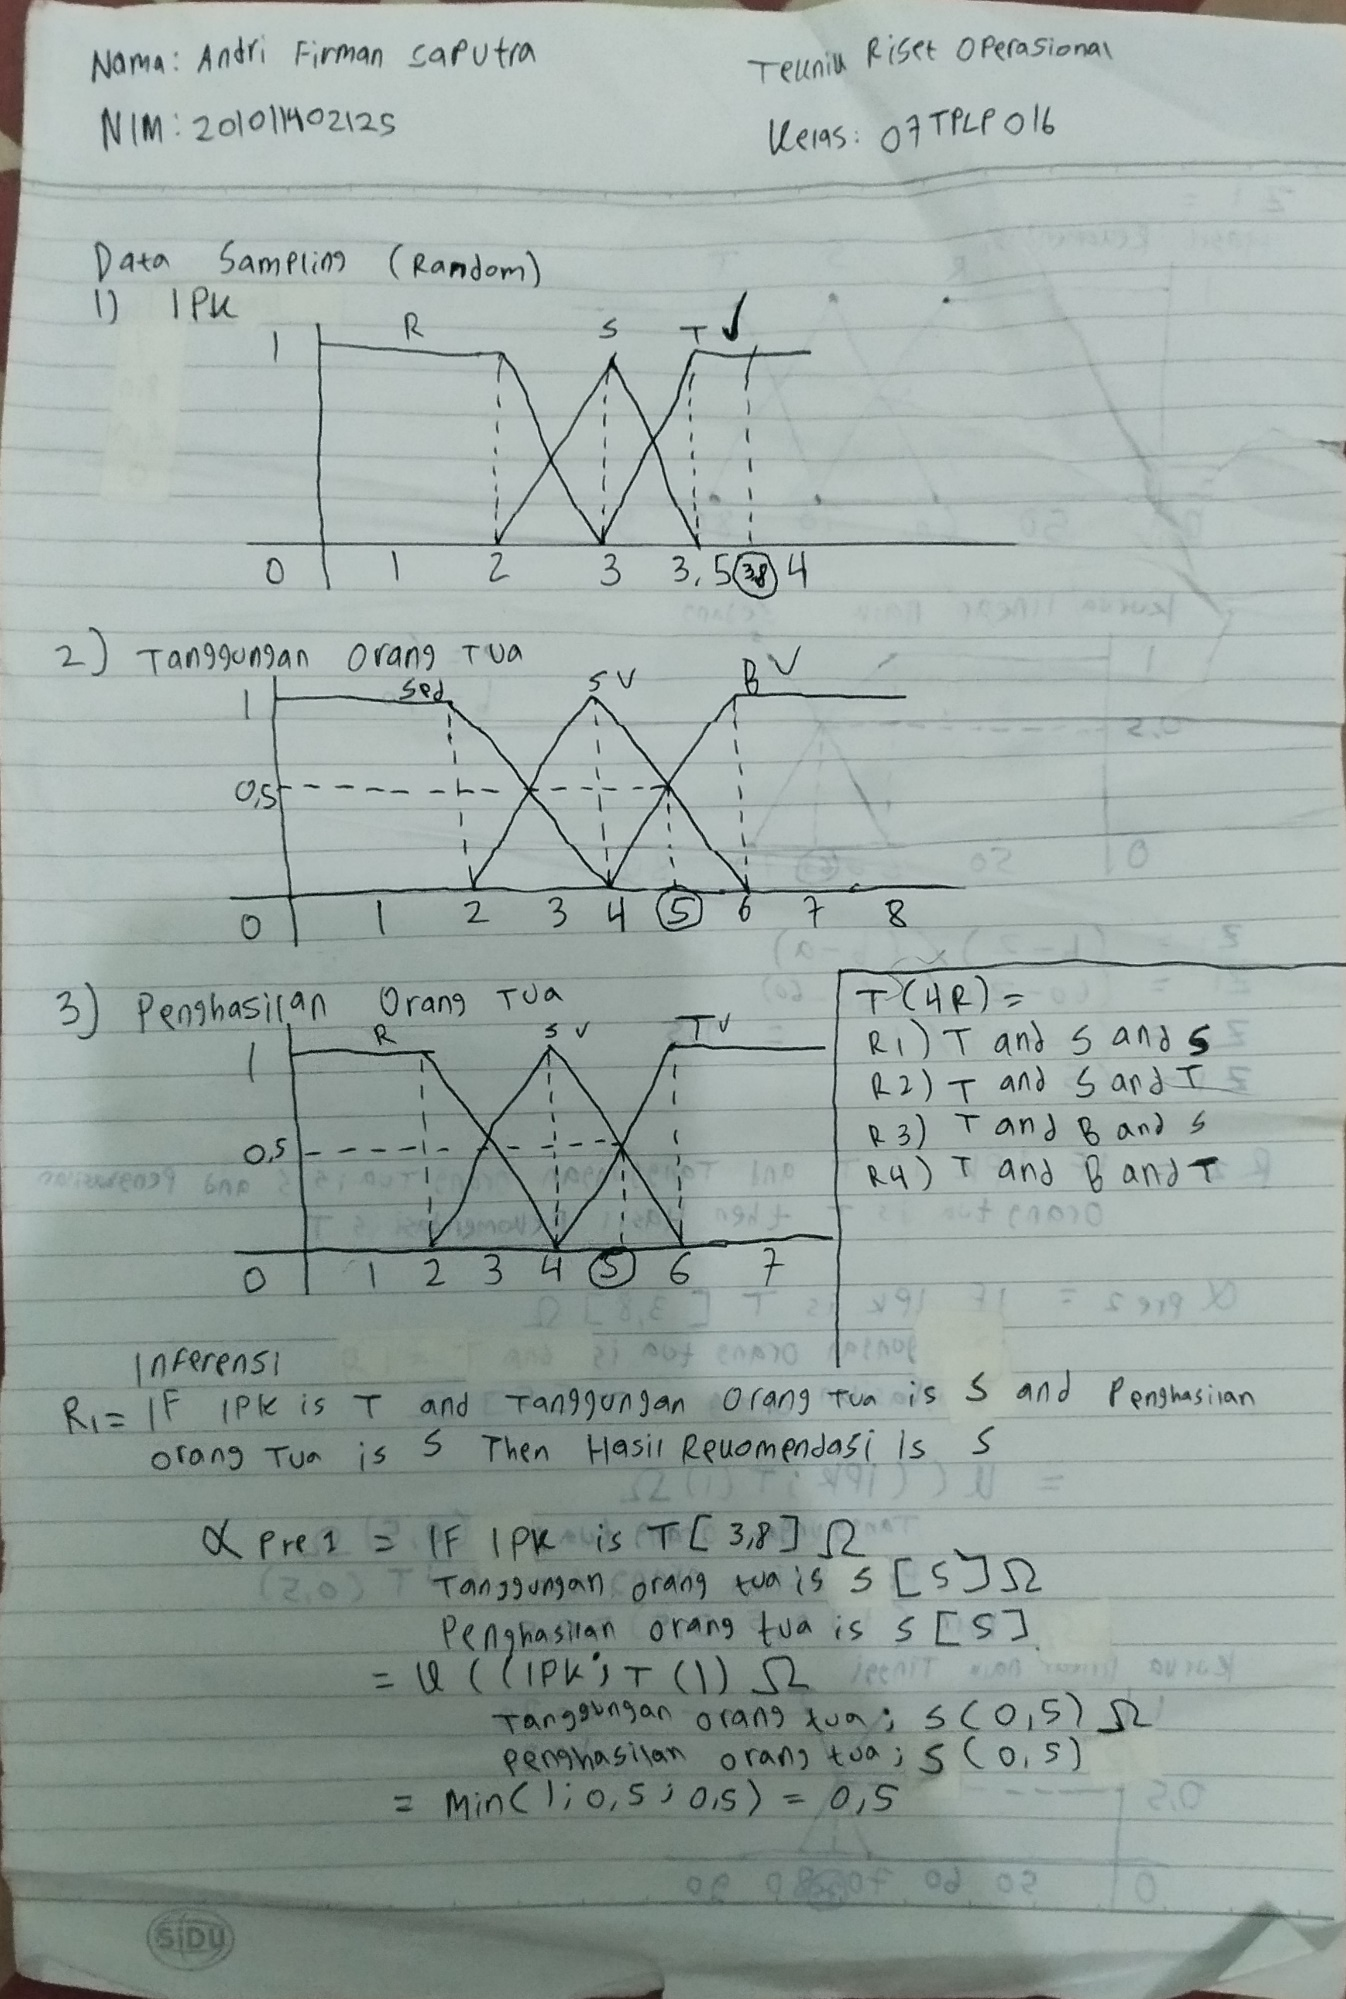 Nama: Andri Firman Saputra
Teknik Riset Operasional
NIM: 201011402125
Kelas: 07TPLP016
Data Sampling (Random)
1) IPK
R S T ✓
1
0 1 2 3 3,5 3,8 4
2) Tanggungan Orang Tua
1 Sed S V B V
0,5
0 1 2 3 4 5 6 7 8
3) Penghasilan Orang Tua
R S V T V
1
0,5
0 1 2 3 4 5 6 7
T(4R) =
R1) T and S and S
R2) T and S and T
R3) T and B and S
R4) T and B and T
Inferensi
R1 = IF IPK is T and Tanggungan Orang Tua is S and Penghasilan
Orang Tua is S Then Hasil Rekomendasi Is S
α Pre 1 = IF IPK is T [3,8] Ω
Tanggungan orang tua is S [5] Ω
Penghasilan orang tua is S [5]
= U ((IPK; T (1) Ω
Tanggungan orang tua; S (0,5) Ω
Penghasilan orang tua; S (0,5)
= Min(1; 0,5; 0,5) = 0,5
SiDU